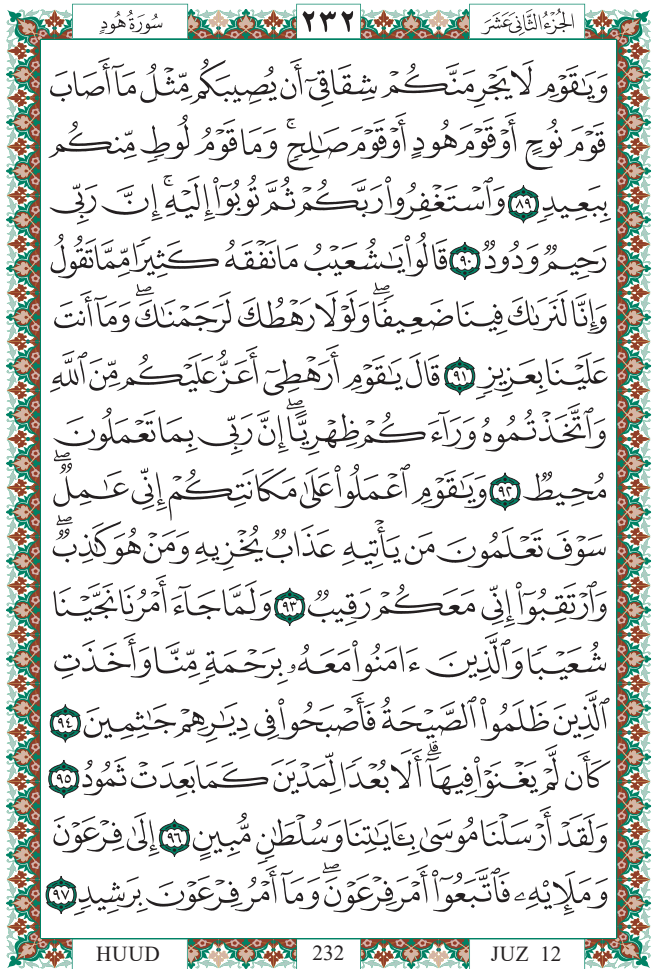 الجُزْءُ الثَّانِي عَشَرَ ٢٣٢ سُورَةُ هُودٍ
وَيَٰقَوْمِ لَا يَجْرِمَنَّكُمْ شِقَاقِىٓ أَن يُصِيبَكُم مِّثْلُ مَآ أَصَابَ
قَوْمَ نُوحٍ أَوْ قَوْمَ هُودٍ أَوْ قَوْمَ صَٰلِحٍۚ وَمَا قَوْمُ لُوطٍ مِّنكُم
بِبَعِيدٍ ٨٩ وَٱسْتَغْفِرُوا۟ رَبَّكُمْ ثُمَّ تُوبُوٓا۟ إِلَيْهِۚ إِنَّ رَبِّى
رَحِيمٌ وَدُودٌ ٩٠ قَالُوا۟ يَٰشُعَيْبُ مَا نَفْقَهُ كَثِيرًا مِّمَّا تَقُولُ
وَإِنَّا لَنَرَىٰكَ فِينَا ضَعِيفًاۖ وَلَوْلَا رَهْطُكَ لَرَجَمْنَٰكَۖ وَمَآ أَنتَ
عَلَيْنَا بِعَزِيزٍ ٩١ قَالَ يَٰقَوْمِ أَرَهْطِىٓ أَعَزُّ عَلَيْكُم مِّنَ ٱللَّهِ
وَٱتَّخَذْتُمُوهُ وَرَآءَكُمْ ظِهْرِيًّاۖ إِنَّ رَبِّى بِمَا تَعْمَلُونَ
مُحِيطٌ ٩٢ وَيَٰقَوْمِ ٱعْمَلُوا۟ عَلَىٰ مَكَانَتِكُمْ إِنِّى عَٰمِلٌۖ
سَوْفَ تَعْلَمُونَ مَن يَأْتِيهِ عَذَابٌ يُخْزِيهِ وَمَنْ هُوَ كَٰذِبٌۖ
وَٱرْتَقِبُوٓا۟ إِنِّى مَعَكُمْ رَقِيبٌ ٩٣ وَلَمَّا جَآءَ أَمْرُنَا نَجَّيْنَا
شُعَيْبًا وَٱلَّذِينَ ءَامَنُوا۟ مَعَهُۥ بِرَحْمَةٍ مِّنَّا وَأَخَذَتِ
ٱلَّذِينَ ظَلَمُوا۟ ٱلصَّيْحَةُ فَأَصْبَحُوا۟ فِى دِيَٰرِهِمْ جَٰثِمِينَ ٩٤
كَأَن لَّمْ يَغْنَوْا۟ فِيهَآۗ أَلَا بُعْدًا لِّمَدْيَنَ كَمَا بَعِدَتْ ثَمُودُ ٩٥
وَلَقَدْ أَرْسَلْنَا مُوسَىٰ بِـَٔايَٰتِنَا وَسُلْطَٰنٍ مُّبِينٍ ٩٦ إِلَىٰ فِرْعَوْنَ
وَمَلَإِي۟هِۦ فَٱتَّبَعُوٓا۟ أَمْرَ فِرْعَوْنَۖ وَمَآ أَمْرُ فِرْعَوْنَ بِرَشِيدٍ ٩٧
HUUD 232 JUZ 12